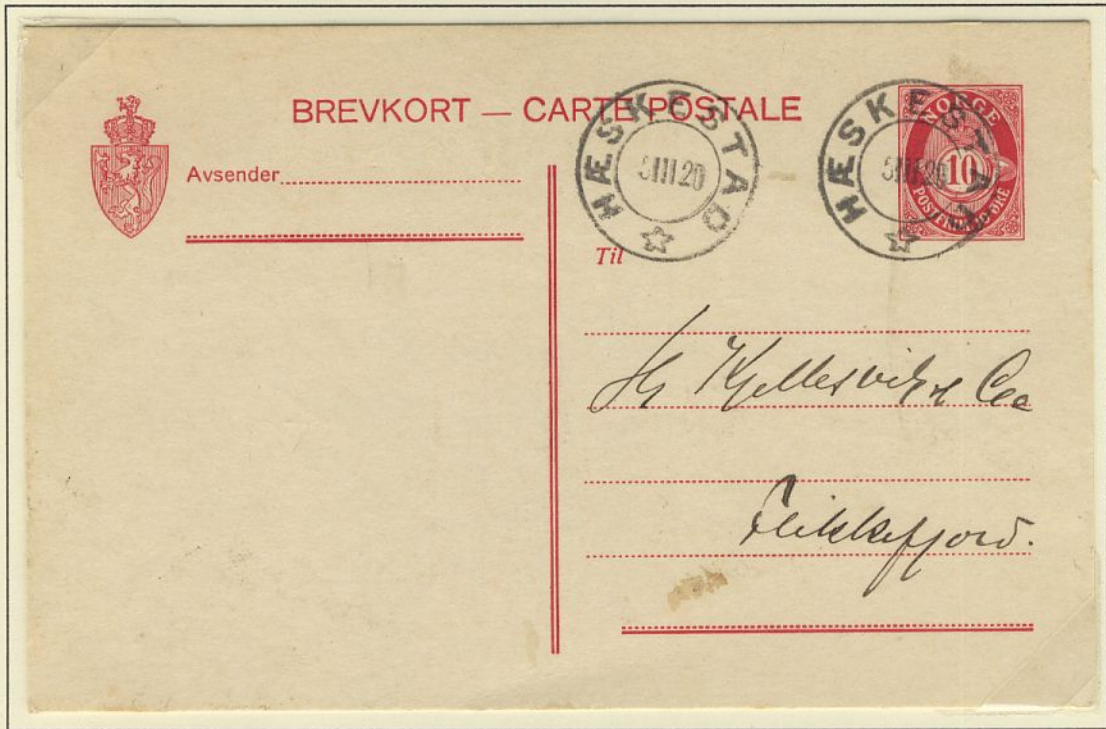 BREVKORT — CARTE POSTALE
HÆSKESTAD
5 III 20
HÆSKESTAD
5 III 20
NORGE
10
POSTFRIM. 10 ØRE
Avsender
Til
Hr Kjellesvik & Co
Flekkefjord.